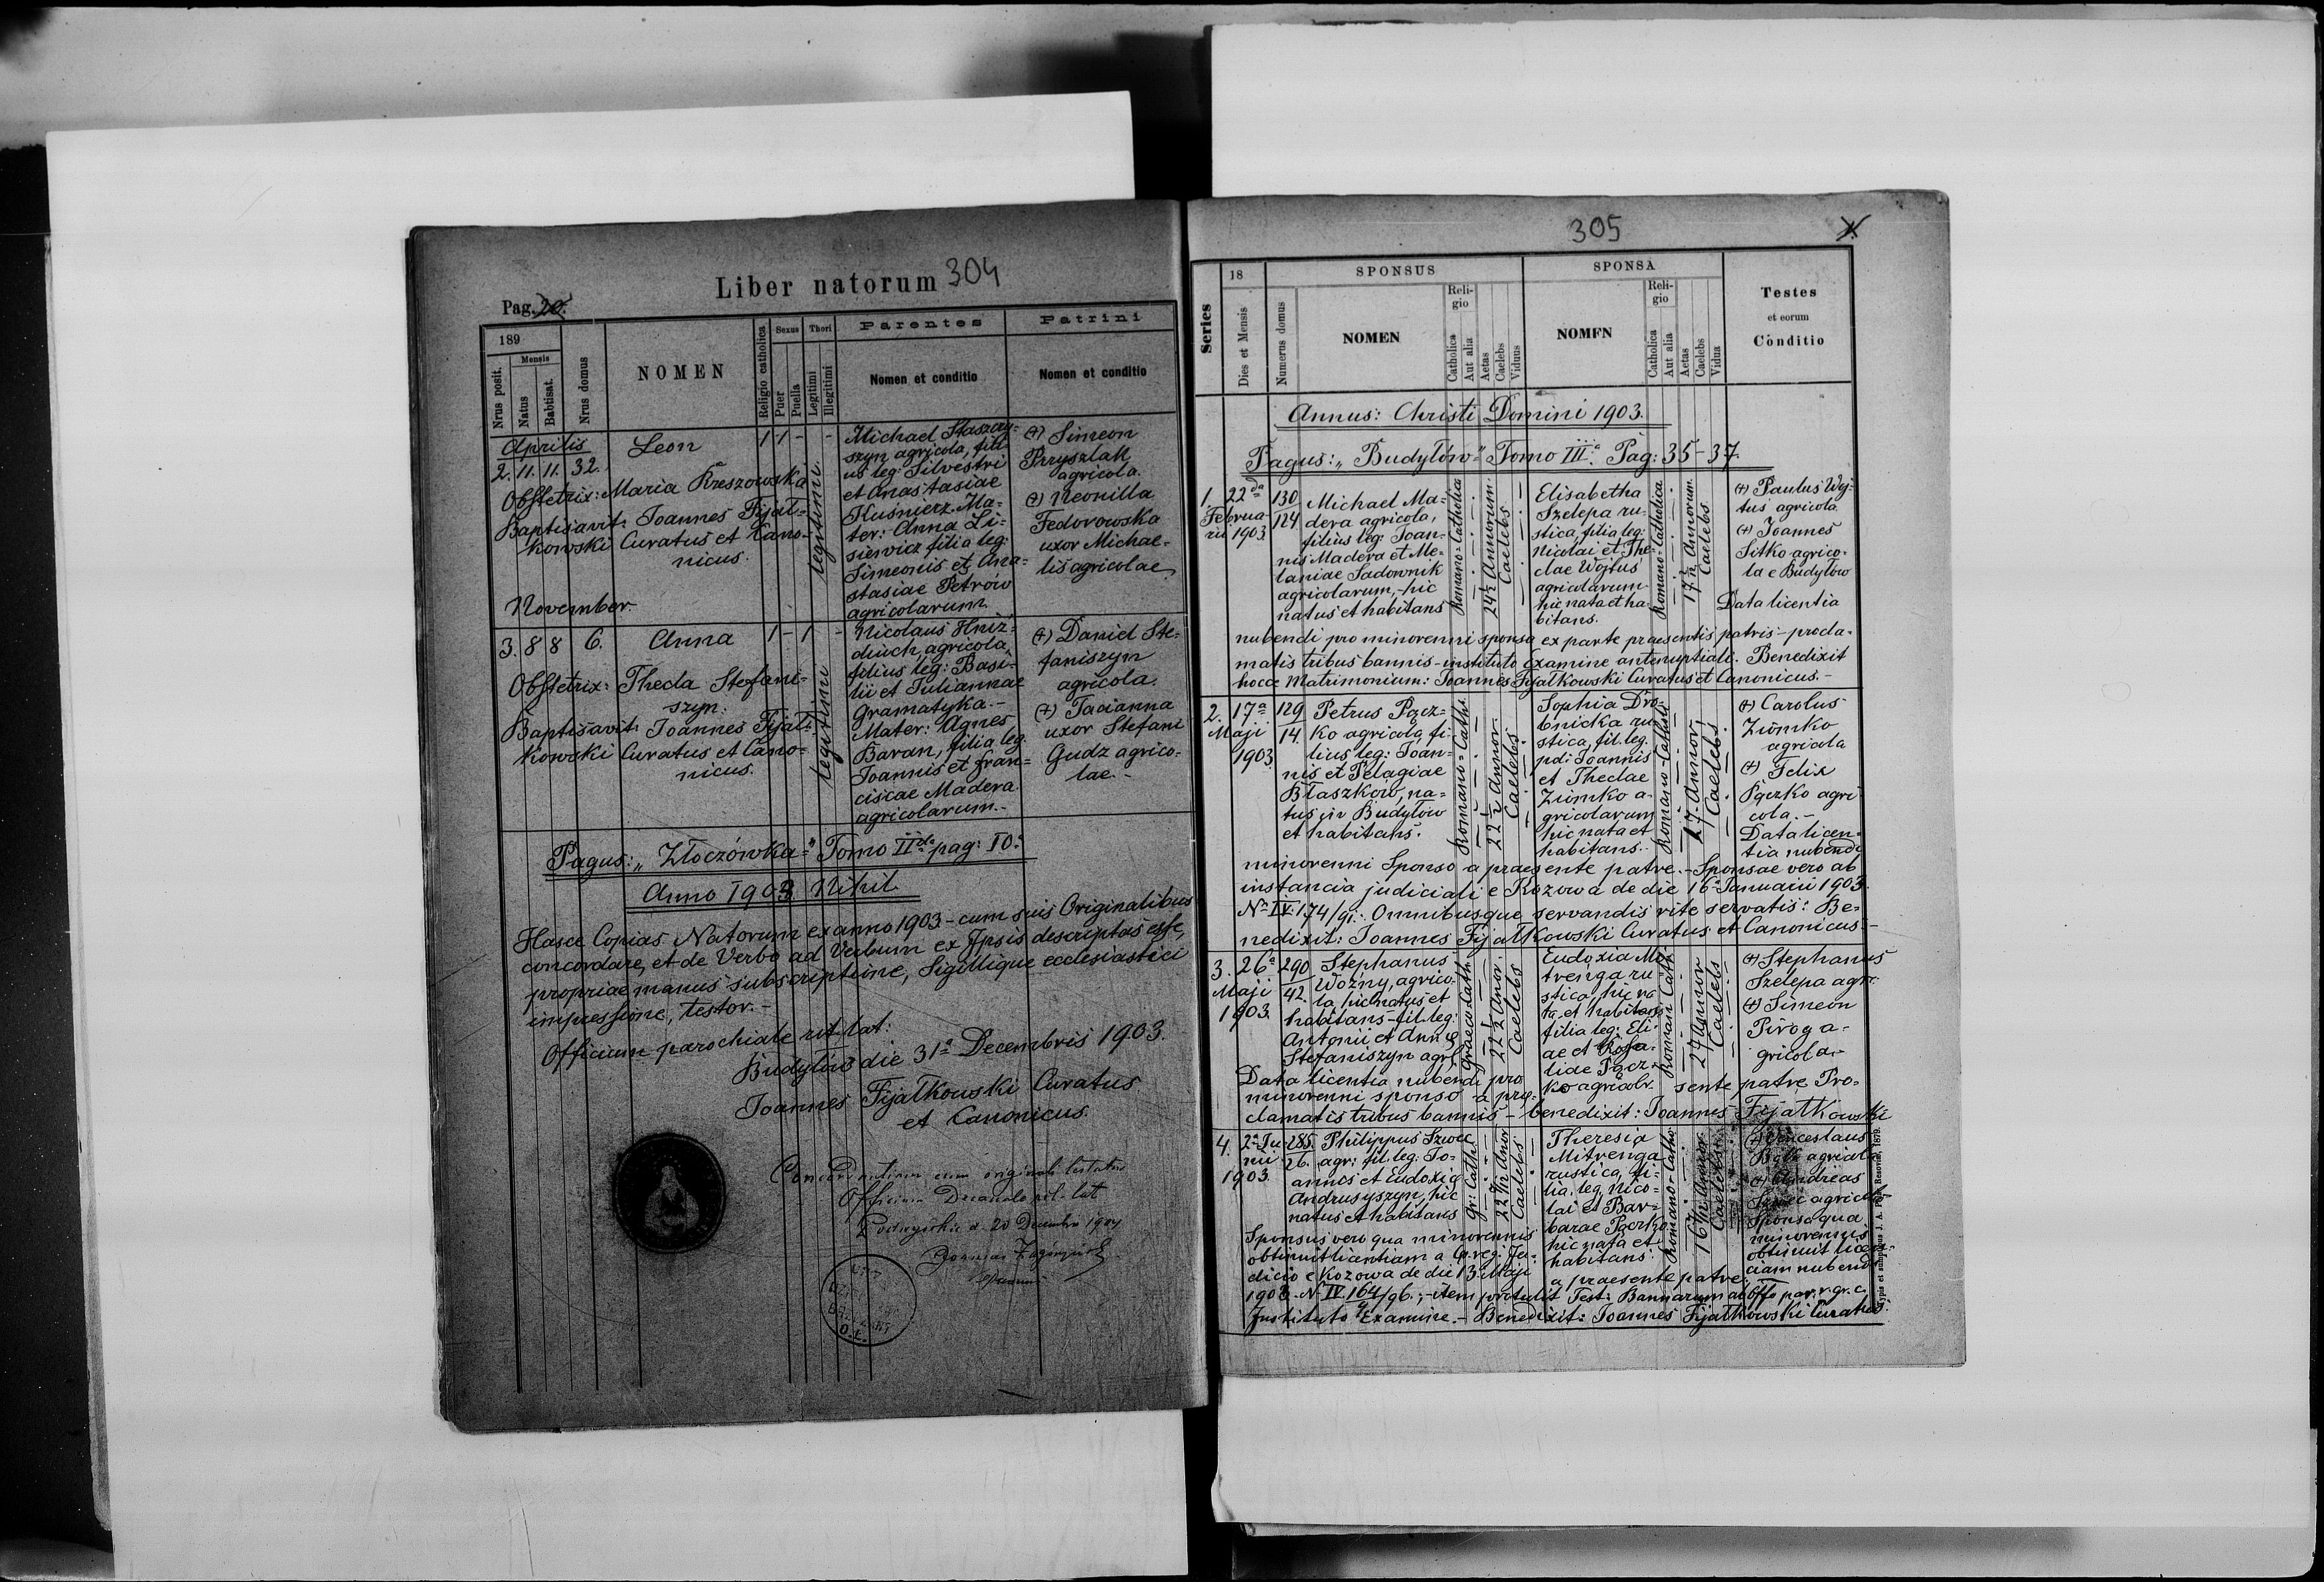 Liber natorum 304
Pag. 20.
189
Nrus posit.
Mensis
Natus
Babtisat.
Nrus domus
NOMEN
Religio catholica
Sexus
Puer
Puella
Thori
Legitimi
Illegitimi
Parentes
Nomen et conditio
Patrini
Nomen et conditio
Aprilis
2. 11. 11. 32.
Leon
1 1 - -
legitimi
Obstetrix: Maria Kreszowska
Baptisavit: Joannes Fijał=
kowski Curatus et Cano=
nicus.
Michael Staszczy=
szyn agricola, fili=
us leg: Silvestri
et Anastasiae
Kusnierz. Ma=
ter: Anna Li=
siewicz filia leg:
Simeonis et Ana=
stasiae Petrów
agricolarum.
(+) Simeon
Przyszlak
agricola.
(+) Neonilla
Fedorowska
uxor Michae=
lis agricolae
November.
3. 8 8 6.
Anna
1 - 1 -
legitimi
Obstetrix: Thecla Stefani=
szyn.
Baptisavit: Joannes Fijał=
kowski Curatus et Cano=
nicus.
Nicolaus Hniz=
diuch, agricola,
filius leg: Basi=
lii et Juliannae
Gramatyka.-
Mater: Agnes
Baran, filia leg.
Joannis et Fran=
ciscae Madera
agricolarum.-
(+) Daniel Ste=
faniszyn
agricola.
(+) Tacianna
uxor Stefani
Gudz agrico=
lae.-
Pagus: "Złoczówka" Tomo IIdo pag: 10.
Anno 1903 Nihil
Hasce Copias Natorum ex anno 1903 - cum suis Originalibus
concordare, et de Verbo ad Verbum ex Ipsis descriptas esse,
propriae manus subscriptione, Sigillique ecclesiastici
impressione, testor.-
Officium parochiale rit. lat:
Budyłów die 31a Decembris 1903.
Joannes Fijałkowski Curatus
et Canonicus.
cum originali testatur
Officium Decanale rit. lat
d. 20 Decembris 1904
305
Series
18
Dies et Mensis
Numerus domus
SPONSUS
NOMEN
Reli-
gio
Catholica
Aut alia
Aetas
Caelebs
Viduus
SPONSA
NOMEN
Reli-
gio
Catholica
Aut alia
Aetas
Caelebs
Vidua
Testes
et eorum
Conditio
Annus: Christi Domini 1903.
Pagus: "Budyłów" Tomo III.a Pag: 35-37.
1. 22da
Februa-
rii 1903
130
124
Michael Ma-
dera agricola,
filius leg: Joan-
nis Madera et Me-
laniae Sadownik
agricolarum, hic
natus et habitans
Romano-Catholica
24½ Annorum
Caelebs
Elisabetha
Szelepa ru-
stica, filia leg:
Nicolai et The-
clae Wojtuś
agricolarum
hic nata et ha-
bitans.
Romano-Catholica
Annorum
Caelebs
(+) Paulus Woj-
tuś agricola
(+) Joannes
Sitko agrico-
la e Budyłów
Data licentia
nubendi pro minorenni sponsa ex parte praesentis patris - procla-
matis tribus bannis - instituto Examine antenuptiali. Benedixit
hocce Matrimonium: Joannes Fijałkowski Curatus et Canonicus.-
2. 17a
Maji
1903
129
14.
Petrus Pącz=
ko agricola, fi-
lius leg: Joan=
nis et Pelagiae
Błaszków, na=
tus in Budyłów
et habitans.
Romano-Cath:
22½ Annor.
Caelebs
Sophia Dro-
bnicka ru-
stica, fil. leg.
pdi Joannis
et Theclae
Ziomko a-
gricolarum
hic nata et
habitans.
Romano-Catholi
17 Annor.
Caelebs
(+) Carolus
Ziomko
agricola
(+) Felix
Pączko agri
cola.-
Data licen-
tia nubendi
minorenni Sponso a praesente patre.- Sponsae vero ab
instancia judiciali e Kozowa de die 16 Januarii 1903.
No IV. 174/91.- Omnibusque servandis rite servatis: Be=
nedixit: Joannes Fijałkowski Curatus et Canonicus.-
3. 26a
Maji
1903.
290
42.
Stephanus
Woźny, agrico-
la, hic natus et
habitans - fil. leg:
Antonii et Annae
Stefaniszyn agr.
Graeco-Cath.
22½ Anor.
Caelebs
Eudoxia Mi-
trenga ru-
stica, hic na
ta et habitans
filia leg: Eli-
ae et Rosa-
liae Pącz-
ko agricolr.
Roman Cath.
24 Annor
Caelebs
(+) Stephanus
Szelepa agr.
(+) Simeon
Pirog a-
gricola.-
Data licentia nubendi pro
minorenni sponso a prae- sente patre Pro-
clamatis tribus bannis - benedixit: Joannes Fijałkowski
4. 2a Ju-
nii
1903.
285.
26.
Philippus Szwec
agr: fil. leg: Jo-
annis et Eudoxia
Andrusyszyn, hic
natus et habitans
Gr: Cath:
Anor
Caelebs
Theresia
Mitrenga
rustica, fi-
lia leg. Nico-
lai et Bar-
barae Pączko
hic nata et
habitans.
Romano-Cath:
Annor.
Caelebs
(+) Venceslaus
agricola
(+) Andreas
Szwec agricola
Sponsa qua
minorennis
obtinuit licen-
ciam nubendi
a praesente patre.
Sponsus vero qua minorennis
obtinuit licentiam a C. reg: Ju-
dicio e Kozowa de die 13 Maji
1903. N IV. 164/96.; - item protulit Test: Bannorum ab Offo par. r. gr. c.
Instituto Examine.- Benedixit: Joannes Fijałkowski Curatus.
Typis et sumptibus J. A. Pelar Resoviae, 1879.